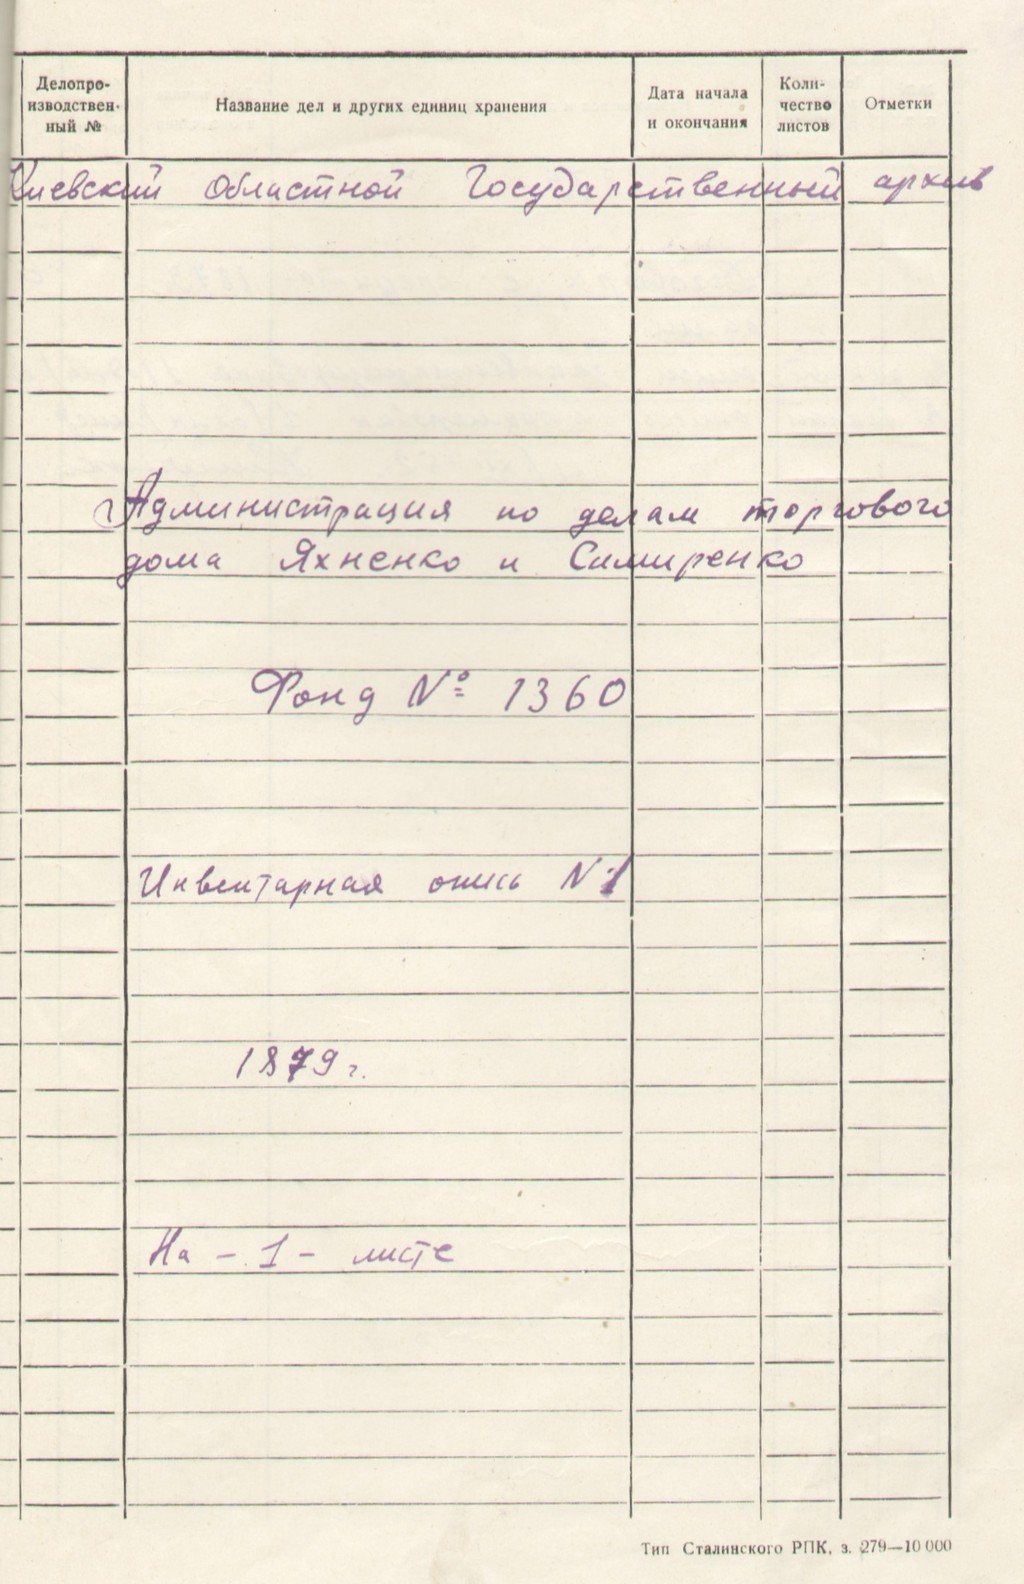 Делопро-
изводствен-
ный №
Название дел и других единиц хранения
Дата начала
и окончания
Коли-
чество
листов
Отметки
Киевский Областной Государственный архив
Администрация по делам торгового
дома Яхненко и Симиренко
Фонд № 1360
Инвентарная опись N1
1879 г.
На - 1 - листе
Тип Сталинского РПК, з. 279—10 000